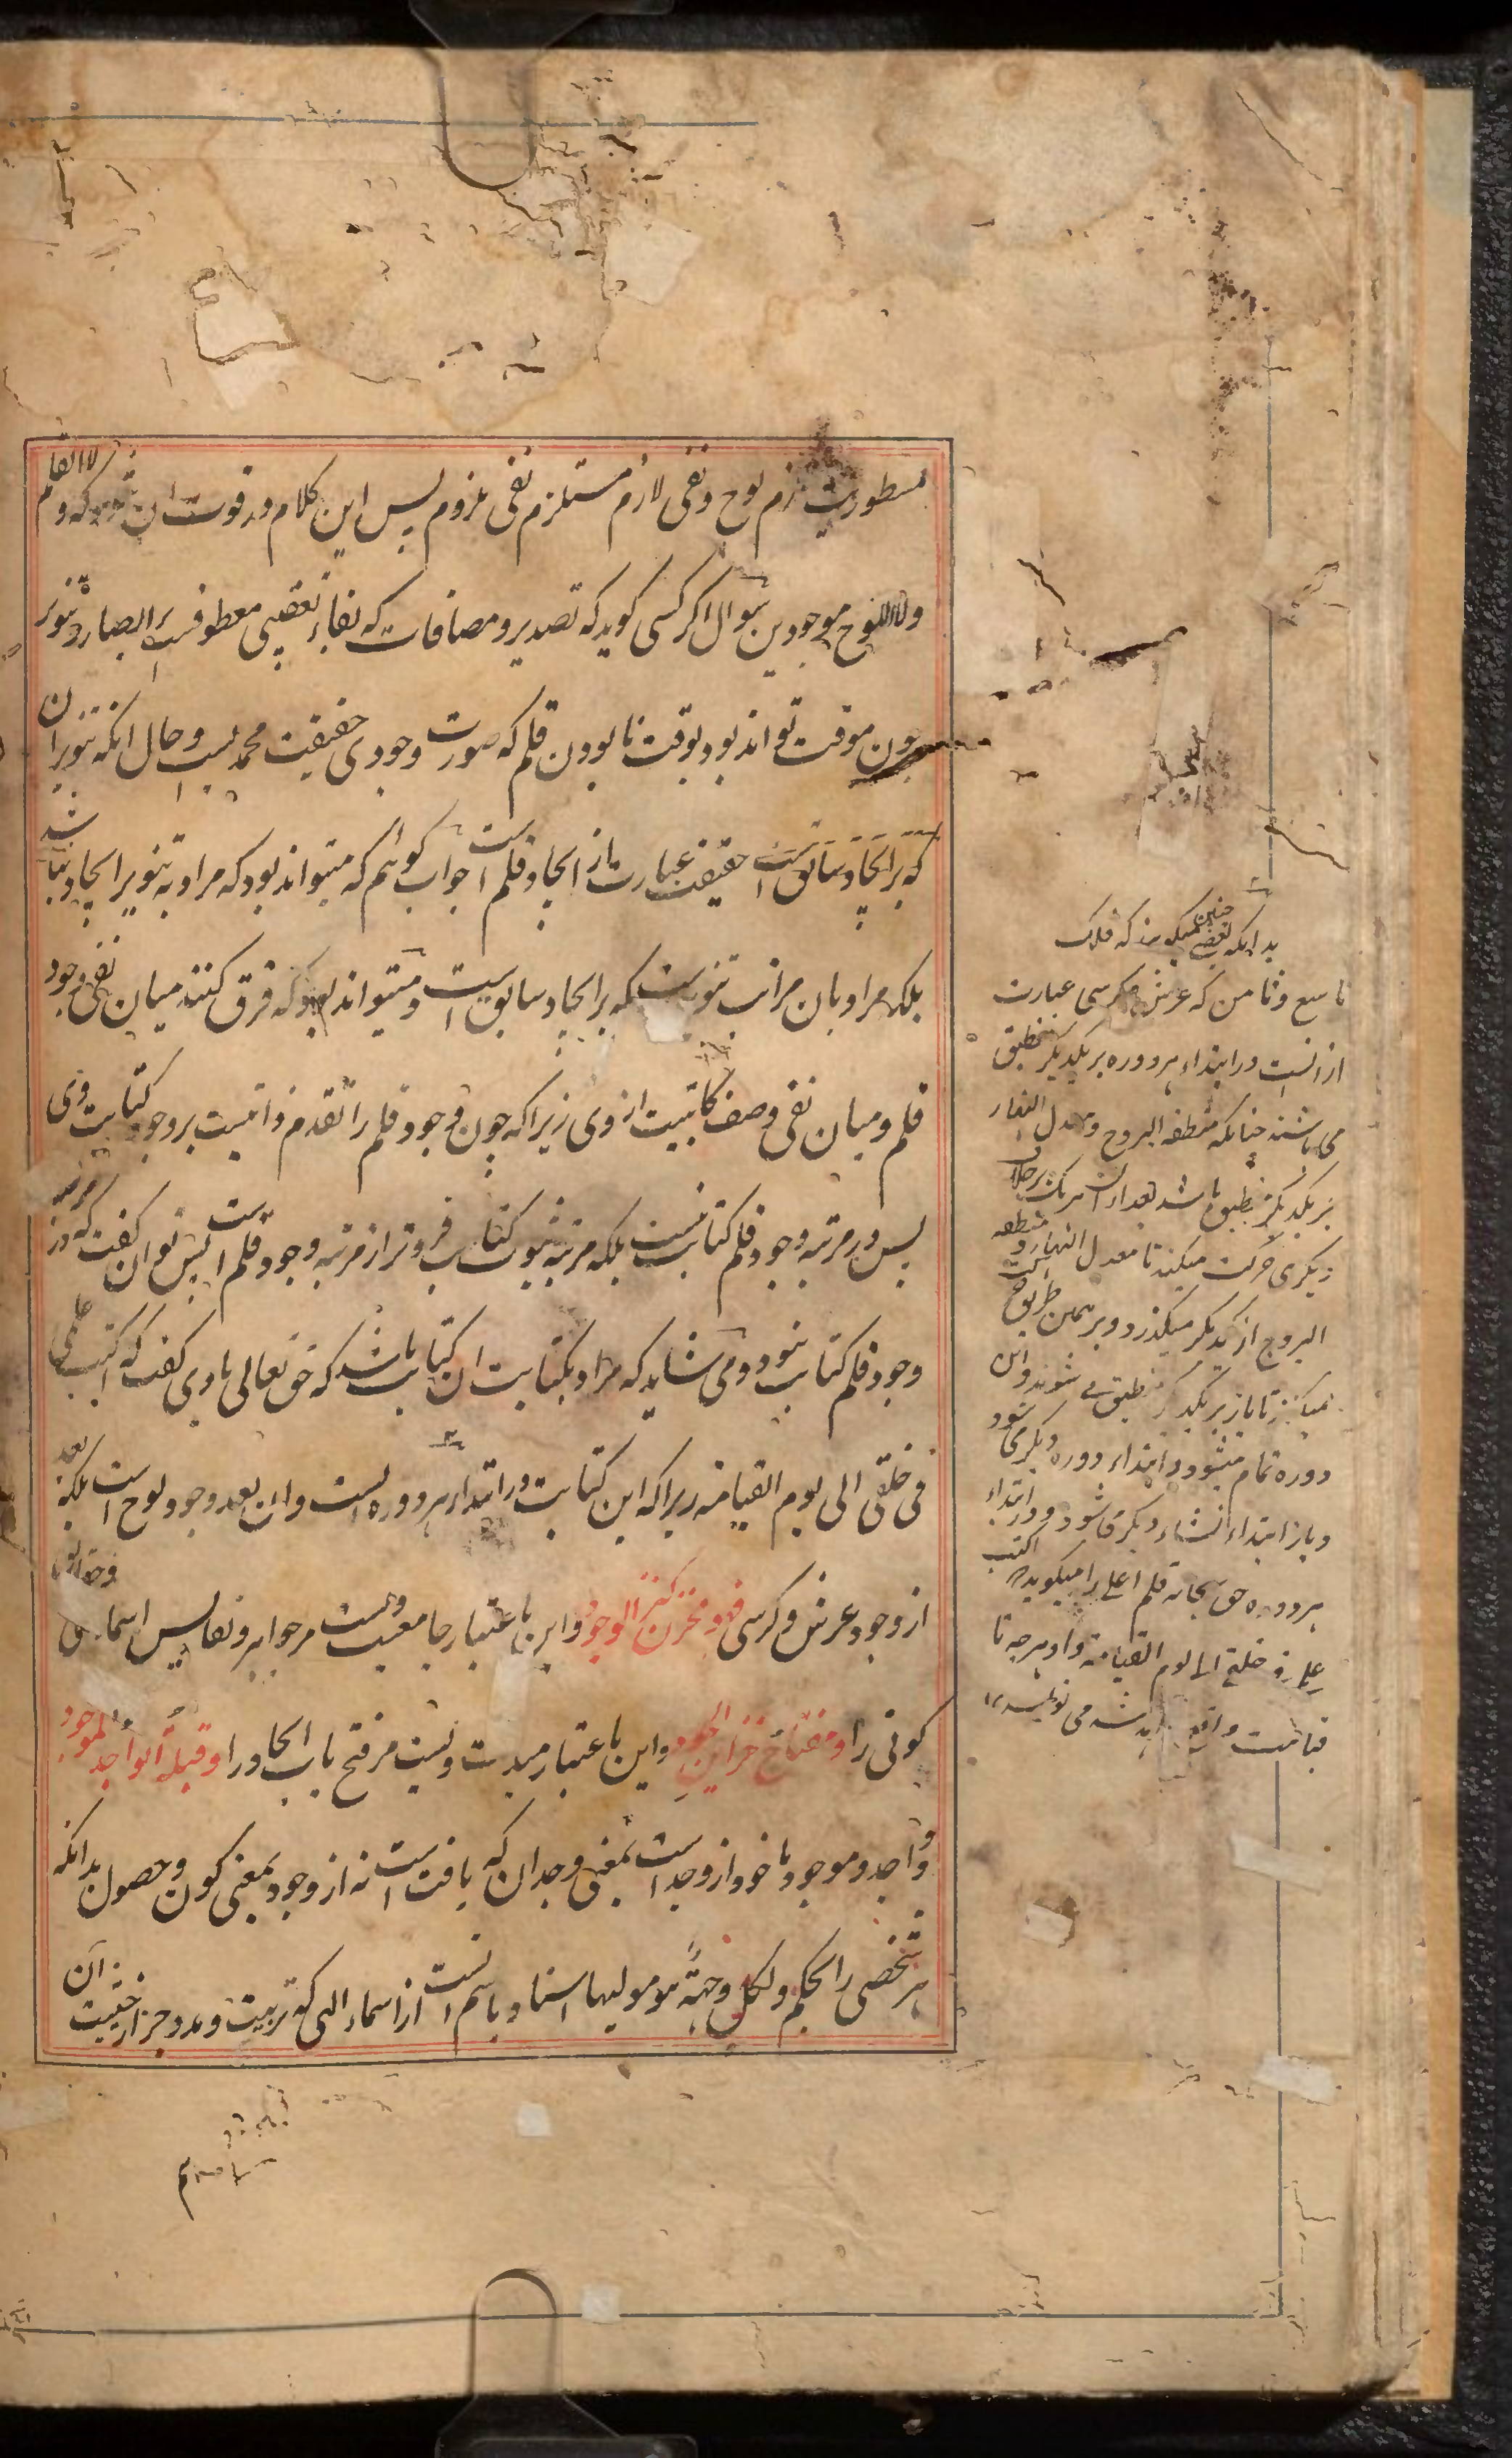 مسطوریت لازم لوح ونفی لازم مستلزم نفی ملزوم پس این کلام در قوت ان شود که ولم لا القلم
ولا اللوح موجودین سوال اگر کسی گوید که تصدیر و مضافات که بفاء تعقیبی معطوفست الصبار و تنویر
چون موقت تواند بود بوقت نابودن قلم که صورت وجودی حقیقت محمدیست وحال انکه تنویر ان
که بر ایجاد سابق است حقیقت عبارت از ایجاد قلم است جواب گوئیم که میتواند بود که مراد به تنویر ایجاد نباشد
بلکه مراد بان مراتب تنویرست که بر ایجاد سابق است و میتواند بود که فرق کنند میان نفی وجود
قلم و میان نفی وصف کاتبیت از وی زیرا که چون وجود قلم را تقدم ذاتیست بر وجود کتابت وی
پس در مرتبه وجود قلم کتابت نیست بلکه مرتبه ثبوت کتابت فروتر از مرتبه وجود قلم است پس توان گفت که در مرتبه
وجود قلم کتابت نبود و می شاید که مراد بکتابت ان کتابت باشد که حق تعالی با وی گفت که اکتب علمی
فی خلقی الی یوم القیامة زیرا که این کتابت در ابتداء هر دوره است وان بعد وجود لوح است بلکه بعد
از وجود عرش و کرسی فهو مخزن کنز الوجود و این باعتبار جامعیت ویست مر جواهر و نفایس اسماء
کونی را و مفتاح خزاین الجود و این باعتبار مبدئیت ویست مر فتح باب ایجاد را و قبلة الواجد والموجود
واجد و موجود ماخوذ از وجد است بمعنی وجدان که یافت است نه از وجود بمعنی کون و حصول بدانکه
هر شخصی را بحکم ولکل وجهة هو مولیها استناد باسم است از اسماء الهی که تربیت و مدد جز از حیثیت آن
بدانکه بعضی چنین میگویند که فلک
تاسع و ثامن که عرش و کرسی عبارت
از انست در ابتداء هر دوره بر یکدیگر منطبق
می باشند چنانکه منطقة البروج و معدل النهار
بر یکدیگر منطبق باشد بعد از ان هر یک بر خلاف
دیگری حرکت میکند تا معدل النهار و منطقة
البروج از یکدیگر میگذرد و بر همین طریق حرکت
میکنند تا باز بر یکدیگر منطبق می شوند و این
دوره تمام میشود و ابتداء دوره دیگر می شود
و باز ابتداء انشاء دیگر می شود و در ابتداء
هر دوره حق سبحانه قلم اعلی را میگوید اکتب
علمی فی خلقی الی یوم القیامة و او هر چه تا
قیامت واقع خواهد شد می نویسد ۱۲